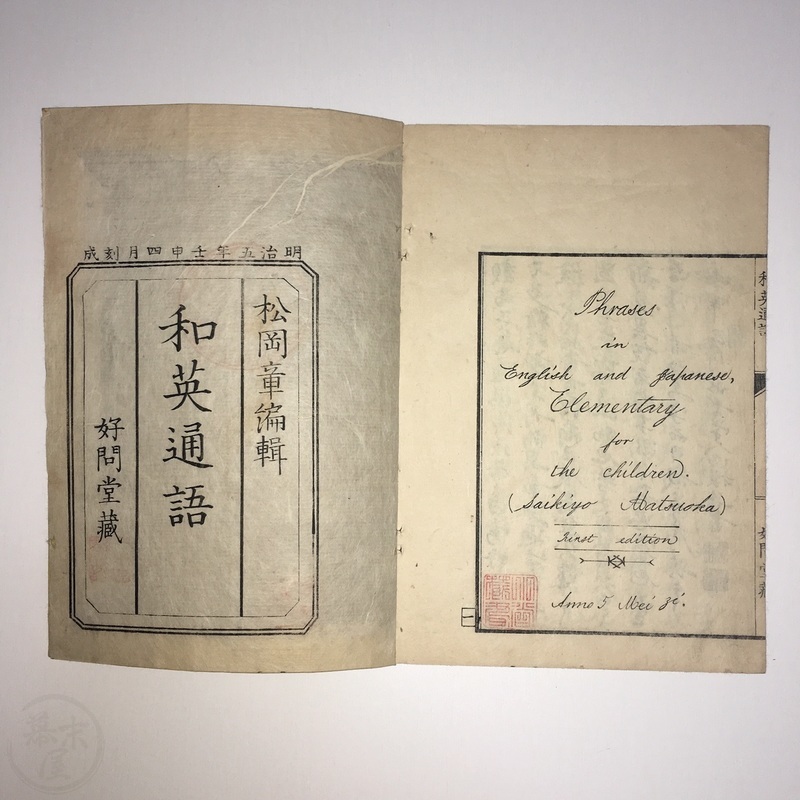 明治五年壬申四月刻成
松岡章編輯
和英通語
好問堂藏
Phrases
in
English and Japanese,
Elementary
for
the children.
(Saikiyo Matsuoka)
edition
Anno 5 Mei zé.
和英通語
好問堂藏
幕末屋